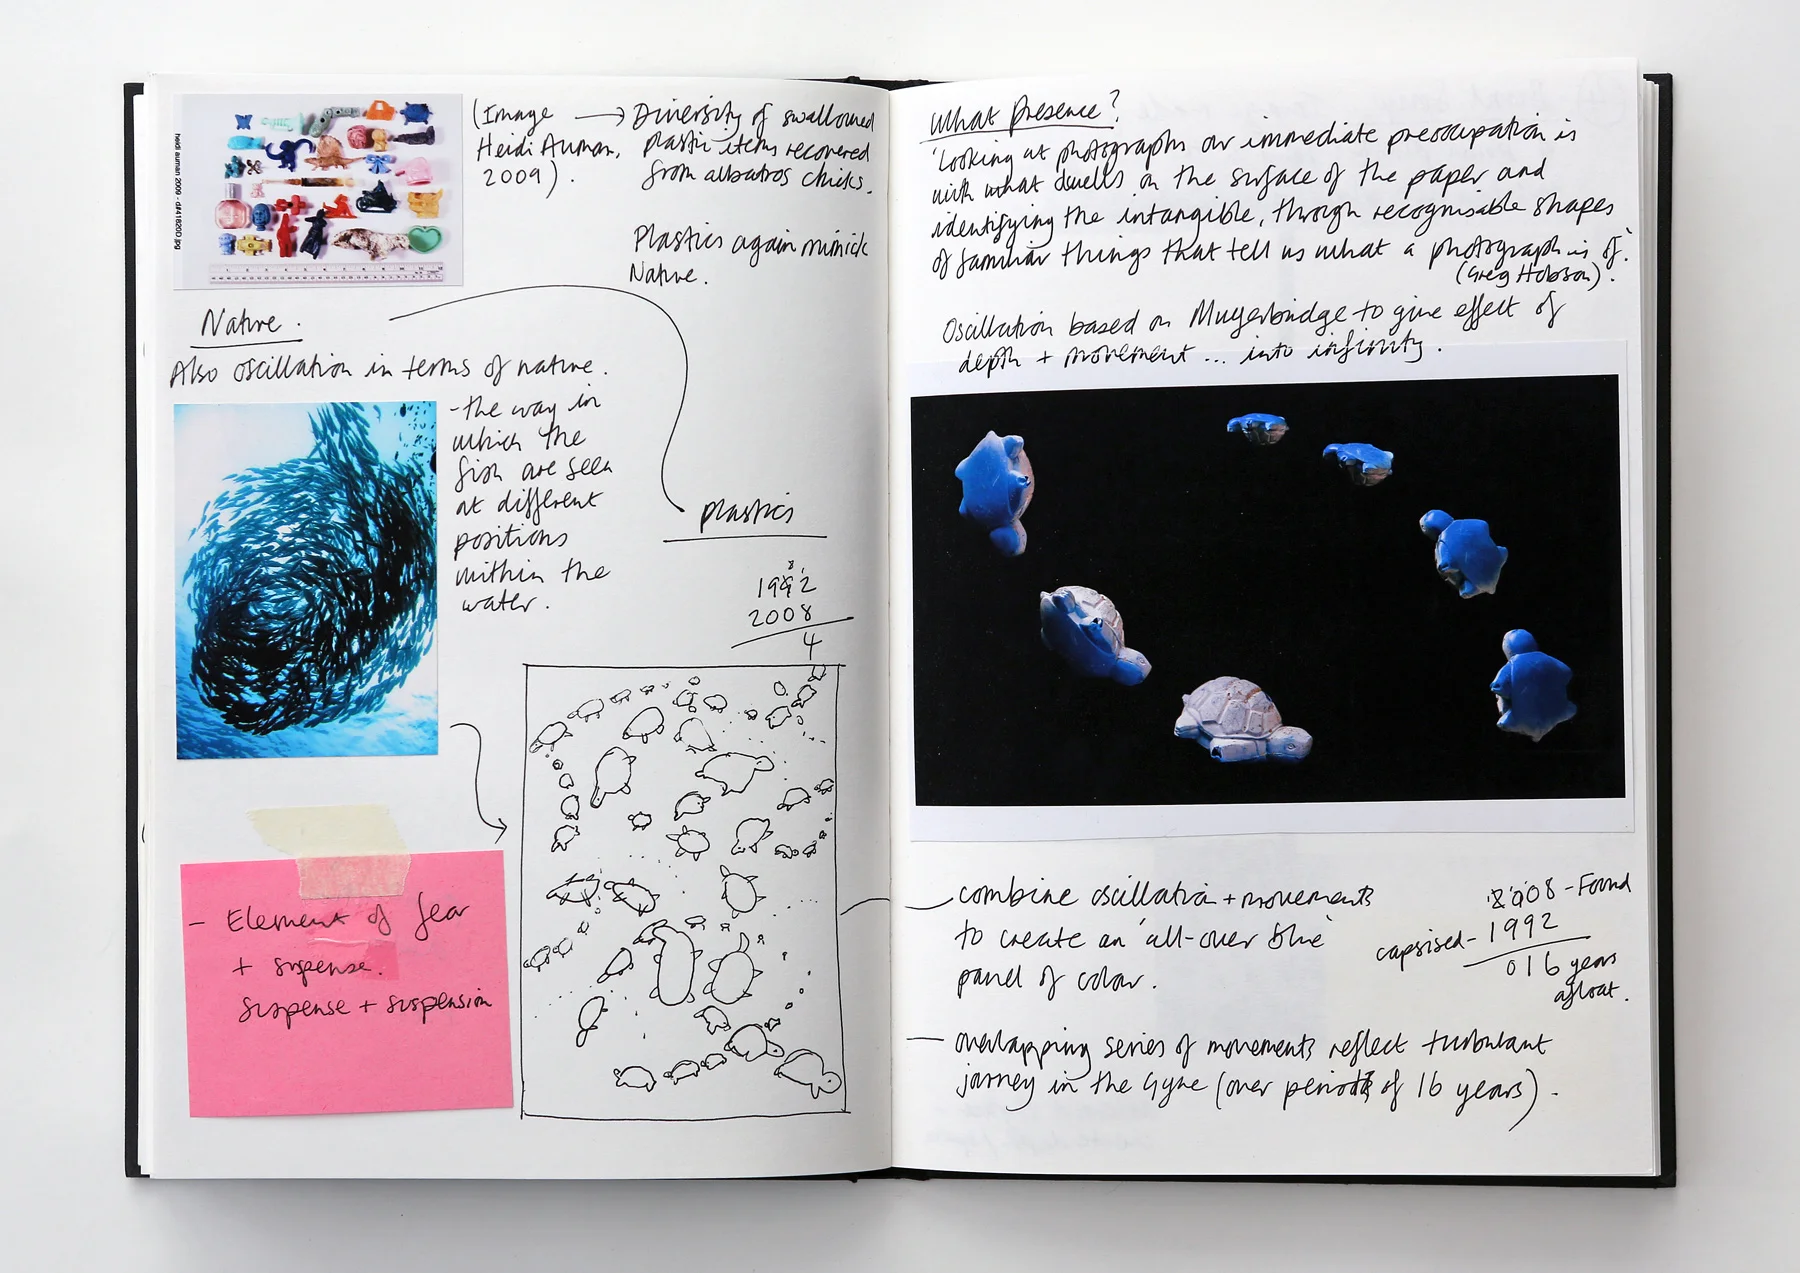 heidi auman 2009 - df41820D jpg
(Image → Diversity of swallowed
Heidi Auman, plastic items recovered
2009). from albatros chicks.
Plastics again mimick
Nature.
Nature.
Also oscillation in terms of nature.
- the way in
which the
fish are seen
at different
positions
within the
water.
plastics
1992
2008
4
- Element of fear
+ suspense.
suspense + suspension
What Presence?
'Looking at photographs our immediate preoccupation is
with what dwells on the surface of the paper and
identifying the intangible, through recognisable shapes
of familiar things that tell us what a photograph is of.'
(Greg Hobson).
Oscillation based on Muyerbridge to give effect of
depth + movement ... into infinity.
combine oscillation + movements
to create an 'all-over blue'
panel of colour.
2008 - Found
capsised - 1992
016 years
afloat.
- overlapping series of movements reflect turbulant
journey in the Gyre (over period of 16 years).